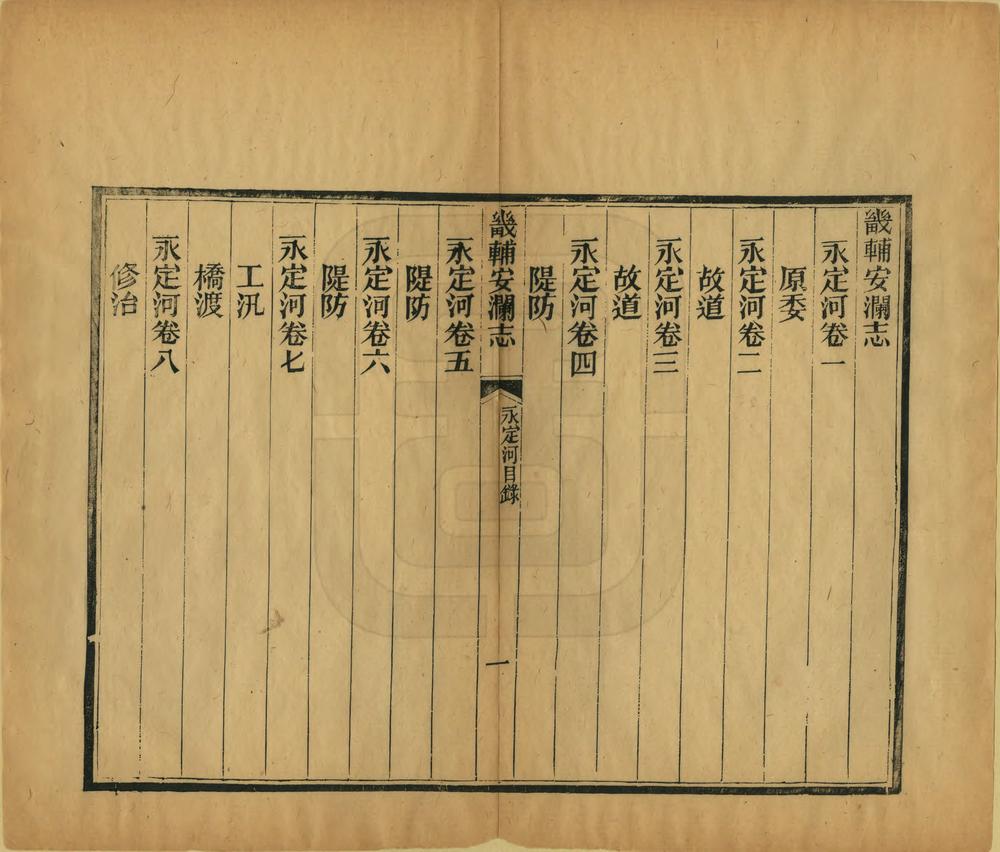 畿輔安瀾志
永定河卷一
原委
永定河卷二
故道
永定河卷三
故道
永定河卷四
隄防
畿輔安瀾志
永定河目錄
一
永定河卷五
隄防
永定河卷六
隄防
永定河卷七
工汛
橋渡
永定河卷八
修治